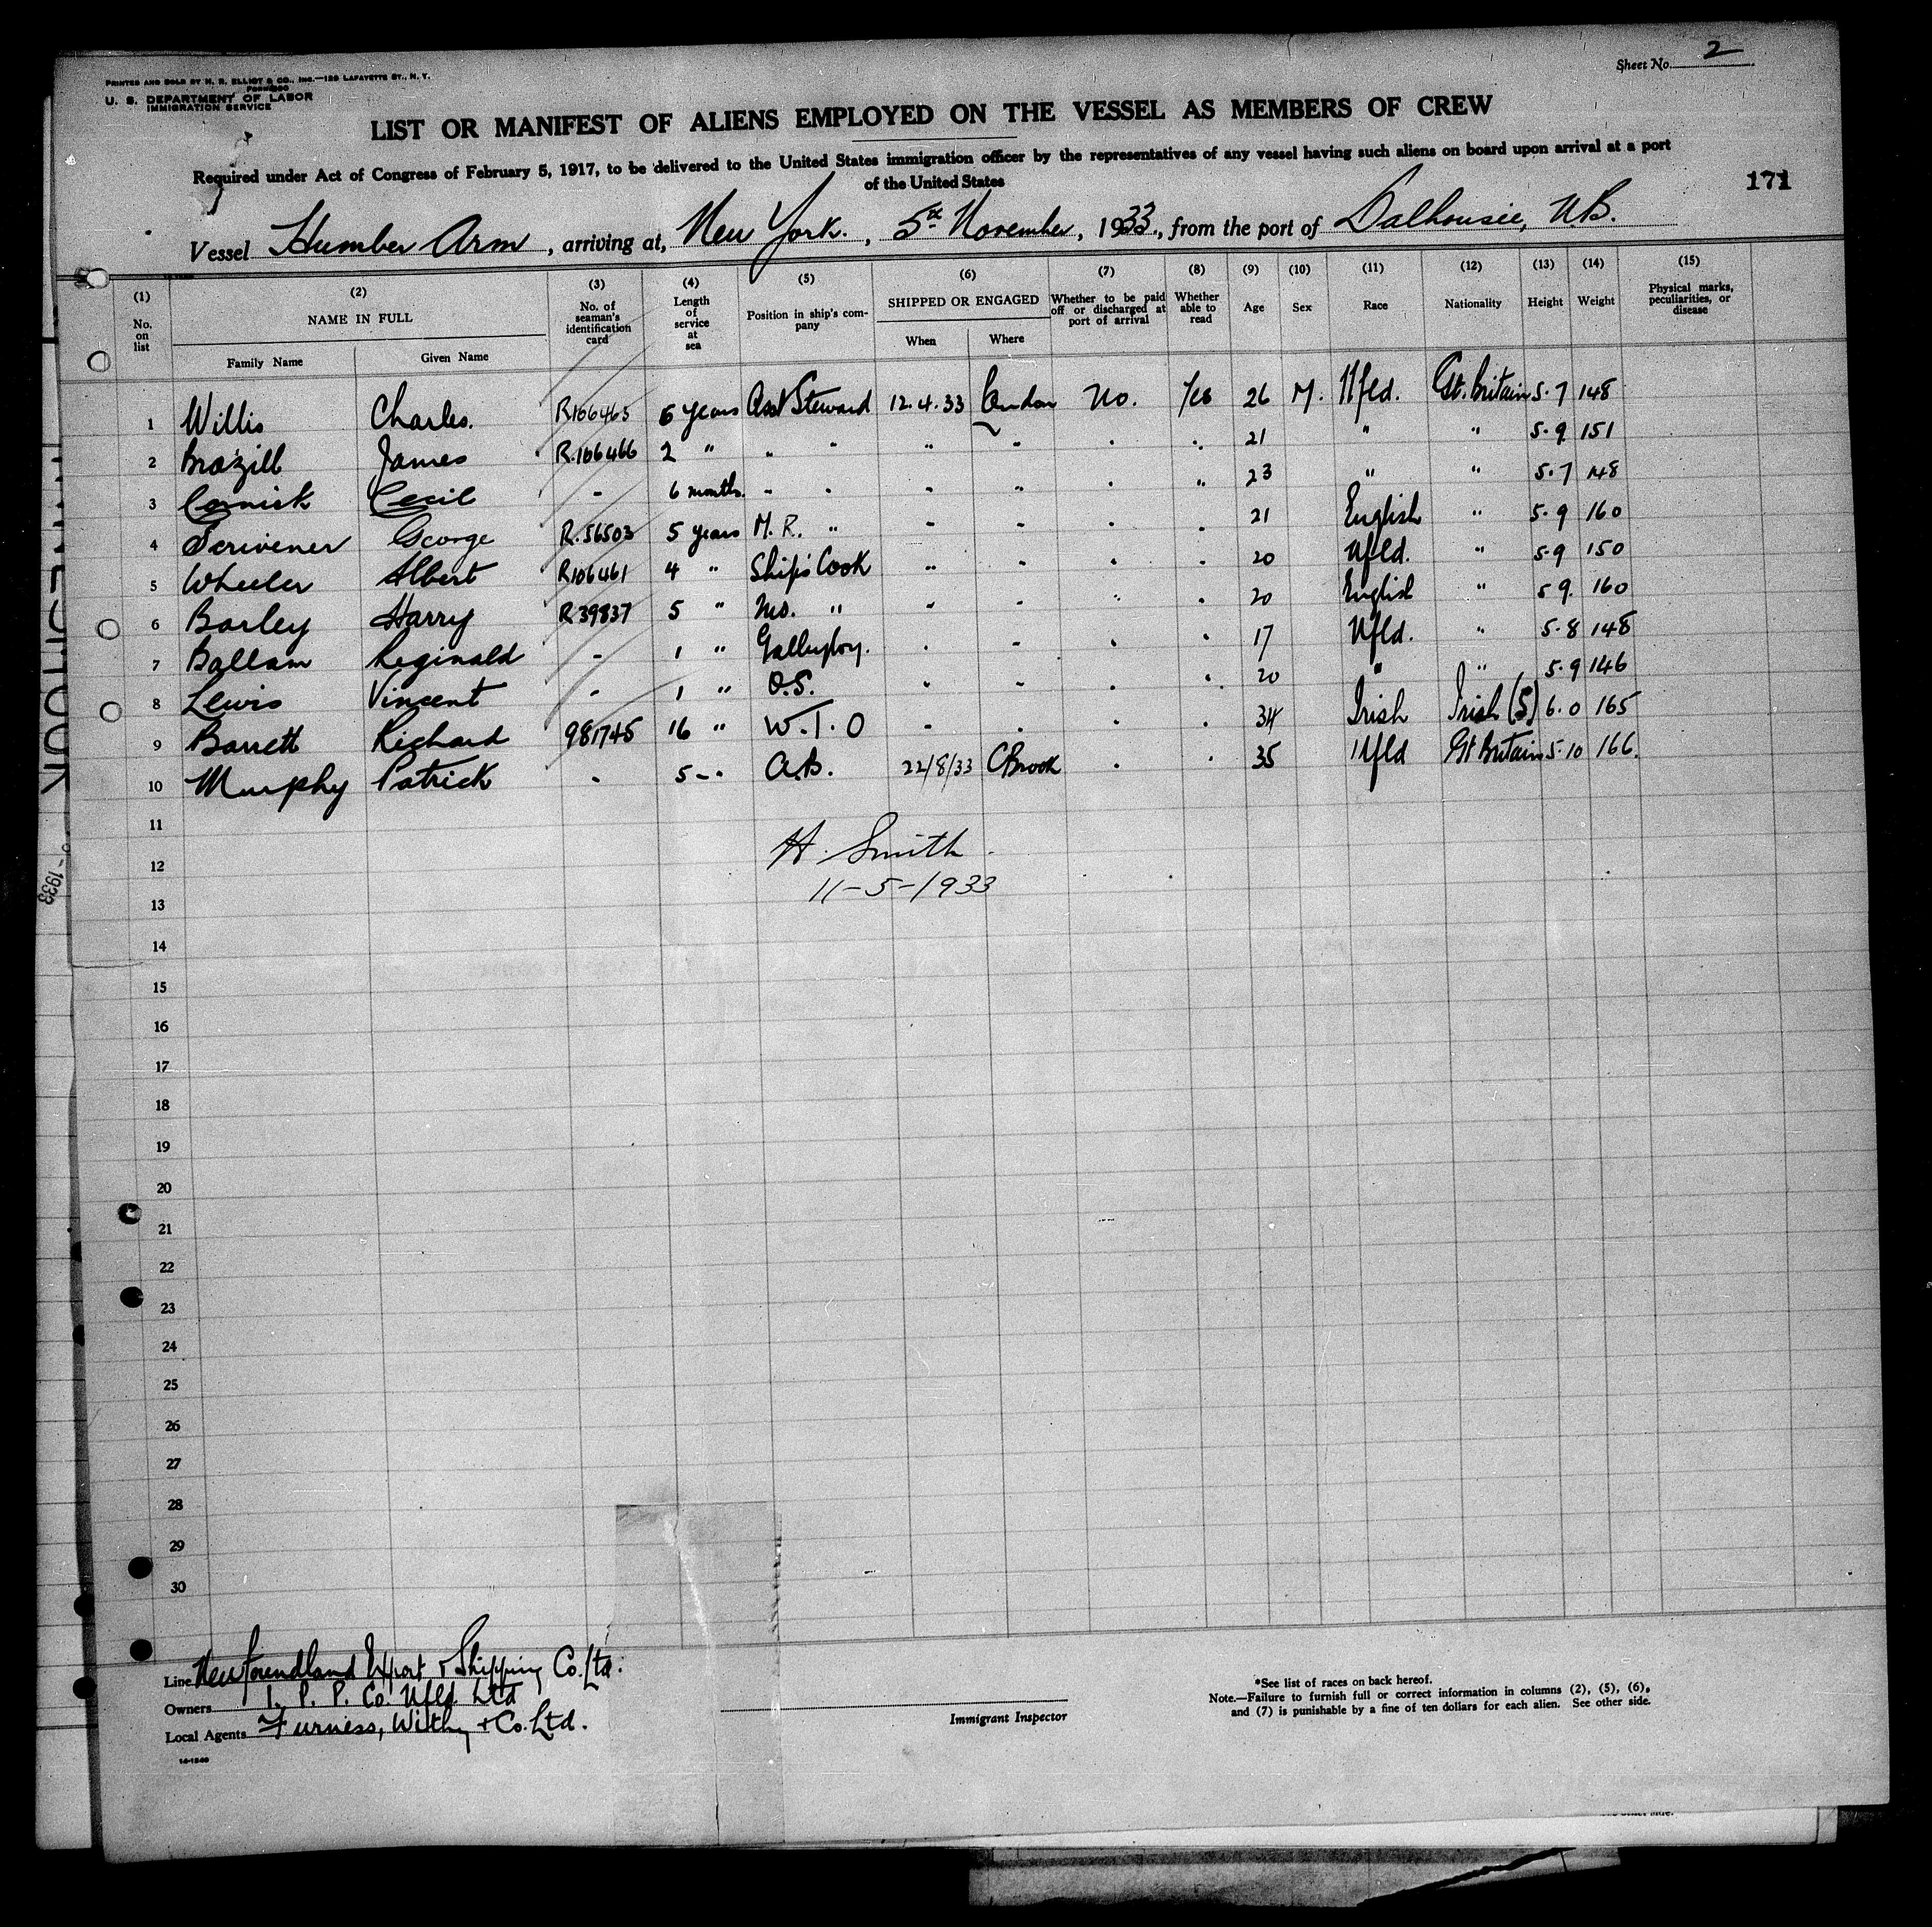 Sheet No. 2
PRINTED AND SOLD BY H. R. ELLIOT & CO., INC.—129 LAFAYETTE ST., N. Y.
U. S. DEPARTMENT OF LABOR
IMMIGRATION SERVICE
LIST OR MANIFEST OF ALIENS EMPLOYED ON THE VESSEL AS MEMBERS OF CREW
Required under Act of Congress of February 5, 1917, to be delivered to the United States immigration officer by the representatives of any vessel having such aliens on board upon arrival at a port
of the United States
171
Vessel Humber Arm, arriving at, New York., 5th November, 1933., from the port of Dalhousie, N.B.
(1) (2) (3) (4) (5) (6) (7) (8) (9) (10) (11) (12) (13) (14) (15)
No. on list NAME IN FULL No. of seaman's identification card Length of service at sea Position in ship's company SHIPPED OR ENGAGED Whether to be paid off or discharged at port of arrival Whether able to read Age Sex Race Nationality Height Weight Physical marks, peculiarities, or disease
Family Name Given Name When Where
1 Willis Charles. R106465 6 years Asst Steward 12.4.33 London No. Yes 26 M. Nfld. Gt. Britain 5.7 148
2 Brazill James R.106466 2 " " " " " " " 21 " " 5.9 151
3 Cornick Cecil - 6 months. " " " " " " 23 " " 5.7 148
4 Scrivener George R.56503 5 years M.R. " " " " " 21 English " 5.9 160
5 Wheeler Albert R106461 4 " Ship's Cook " " " " 20 Nfld. " 5.9 150
6 Barley Harry R39837 5 " " " " " " 20 English " 5 9. 160
7 Ballam Reginald - 1 " Galleyboy. " " " " 17 Nfld. " 5.8 148
8 Lewis Vincent - 1 " O.S. " " " " 20 " " 5.9 146
9 Barrett Richard 981745 16 " W.T.O " " " " 34 Irish Irish (S) 6.0 165
10 Murphy Patrick - 5 - " A.B. 22/8/33 C Brook " " 35 Nfld Gt Britain 5.10 166.
11
H. Smith
12
11-5-1933
13
14
15
16
17
18
19
20
21
22
23
24
25
26
27
28
29
30
Line Newfoundland Export & Shipping Co. Ltd.
Owners I. P. P. Co. Nfld. Ltd
Local Agents Furness, Withy & Co. Ltd.
14-1240
Immigrant Inspector
*See list of races on back hereof.
Note.—Failure to furnish full or correct information in columns (2), (5), (6),
and (7) is punishable by a fine of ten dollars for each alien. See other side.